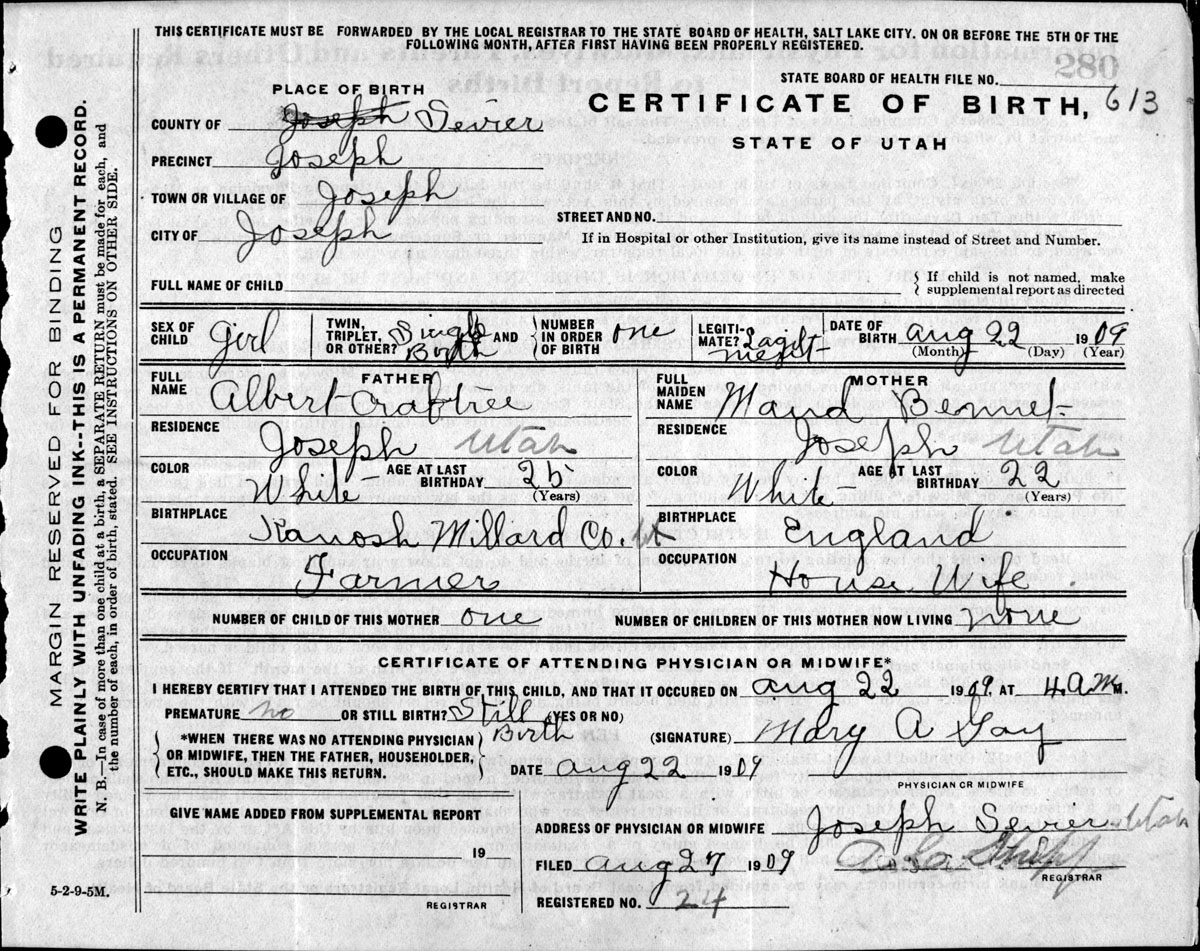 THIS CERTIFICATE MUST BE FORWARDED BY THE LOCAL REGISTRAR TO THE STATE BOARD OF HEALTH, SALT LAKE CITY. ON OR BEFORE THE 5TH OF THE
FOLLOWING MONTH, AFTER FIRST HAVING BEEN PROPERLY REGISTERED.
280
STATE BOARD OF HEALTH FILE NO.
PLACE OF BIRTH
CERTIFICATE OF BIRTH, 613
STATE OF UTAH
COUNTY OF Joseph Sevier
PRECINCT Joseph
TOWN OR VILLAGE OF Joseph
STREET AND NO.
CITY OF Joseph
If in Hospital or other Institution, give its name instead of Street and Number.
FULL NAME OF CHILD
{ If child is not named, make
supplemental report as directed
SEX OF CHILD girl
TWIN, TRIPLET, OR OTHER? Single Birth AND { NUMBER IN ORDER OF BIRTH one
LEGITIMATE?
DATE OF BIRTH aug 22 1909
(Month) (Day) (Year)
FATHER
FULL NAME Albert Crabtree
RESIDENCE Joseph Utah
COLOR White AGE AT LAST BIRTHDAY 25 (Years)
BIRTHPLACE Kanosh Millard Co. Ut
OCCUPATION Farmer
MOTHER
FULL MAIDEN NAME Maud Bennet
RESIDENCE Joseph Utah
COLOR White AGE AT LAST BIRTHDAY 22 (Years)
BIRTHPLACE England
OCCUPATION House Wife
NUMBER OF CHILD OF THIS MOTHER one NUMBER OF CHILDREN OF THIS MOTHER NOW LIVING none
CERTIFICATE OF ATTENDING PHYSICIAN OR MIDWIFE*
I HEREBY CERTIFY THAT I ATTENDED THE BIRTH OF THIS CHILD, AND THAT IT OCCURED ON aug 22 1909. AT 4 a M.
PREMATURE no OR STILL BIRTH? Still Birth (YES OR NO)
{ *WHEN THERE WAS NO ATTENDING PHYSICIAN
OR MIDWIFE, THEN THE FATHER, HOUSEHOLDER,
ETC., SHOULD MAKE THIS RETURN. }
(SIGNATURE) Mary A Gay
DATE aug 22 1909
PHYSICIAN OR MIDWIFE
GIVE NAME ADDED FROM SUPPLEMENTAL REPORT
19
REGISTRAR
ADDRESS OF PHYSICIAN OR MIDWIFE Joseph Sevier Utah
FILED aug 27 1909
REGISTRAR
REGISTERED NO. 24
MARGIN RESERVED FOR BINDING
WRITE PLAINLY WITH UNFADING INK--THIS IS A PERMANENT RECORD.
N. B.—In case of more than one child at a birth, a SEPARATE RETURN must be made for each, and
the number of each, in order of birth, stated. SEE INSTRUCTIONS ON OTHER SIDE.
5-2-9-5M.